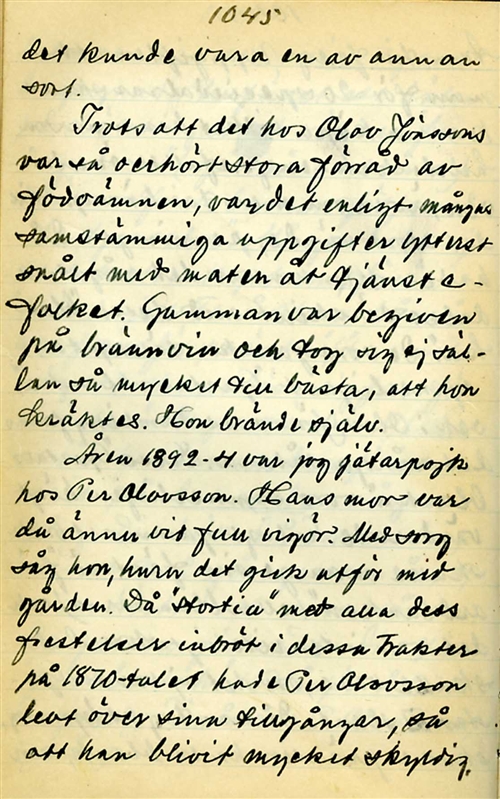 1045
det kunde vara en av annan
sort.
Trots att det hos Olov Jönssons
var så oerhört stora förråd av
födoämnen, var det enligt mångas
samstämmiga uppgifter ytterst
snålt med maten åt tjänste-
folket. Gumman var begiven
på brännvin och tog sig ej säl-
lan så mycket till bästa, att hon
kräktes. Hon brände själv.
Åren 1892-4 var jag jätarpojk
hos Per Olovsson. Hans mor var
då ännu vid full vigör. Med sorg
såg hon, huru det gick utför med
gården. Då "stortia" med alla dess
frestelser inbröt i dessa trakter
på 1870-talet hade Per Olovsson
levt över sina tillgångar, så
att han blivit mycket skyldig.